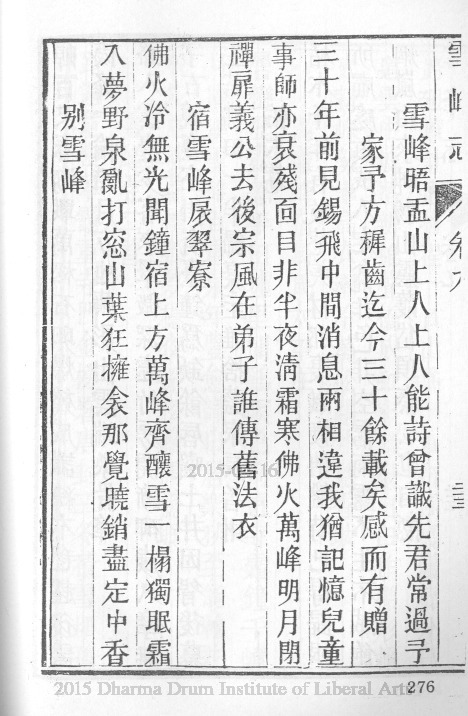 雪峰志 卷九
雪峰晤盂山上人上人能詩曾識先君常過予
家予方穉齒迄今三十餘載矣感而有贈
三十年前見錫飛中間消息兩相違我猶記憶兒童
事師亦衰殘面目非半夜淸霜寒佛火萬峰明月閉
禪扉義公去後宗風在弟子誰傳舊法衣
宿雪峰扆翠寮
佛火冷無光聞鐘宿上方萬峰齊釀雪一榻獨眠霜
入夢野泉亂打窓山葉狂擁衾那覺曉銷盡定中香
別雪峰
276
2015 Dharma Drum Institute of Liberal Arts